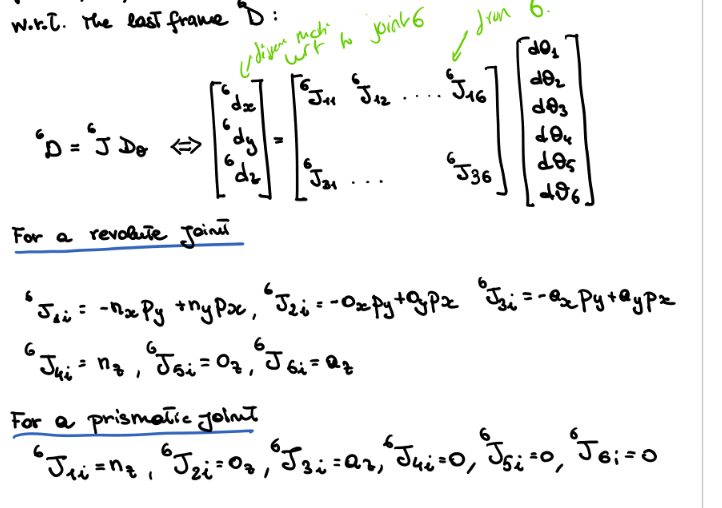 w.r.t. the last frame D :
wrt to joint 6
from 6.
⁶D = ⁶J D_θ ⇔ [⁶dx ⁶dy ⁶dz] = [⁶J₁₁ ⁶J₁₂ .... ⁶J₁₆ ⁶J₃₁ ... ⁶J₃₆] [dθ₁ dθ₂ dθ₃ dθ₄ dθ₅ dθ₆]
For a revolute joint
⁶J₁ᵢ = -nₓpy + nypₓ, ⁶J₂ᵢ = -oₓpy + oypₓ ⁶J₃ᵢ = -aₓpy + aypₓ
⁶J₄ᵢ = n_z , ⁶J₅ᵢ = o_z , ⁶J₆ᵢ = a_z
For a prismatic joint
⁶J₁ᵢ = n_z , ⁶J₂ᵢ = o_z , ⁶J₃ᵢ = a_z, ⁶J₄ᵢ = 0, ⁶J₅ᵢ = 0, ⁶J₆ᵢ = 0